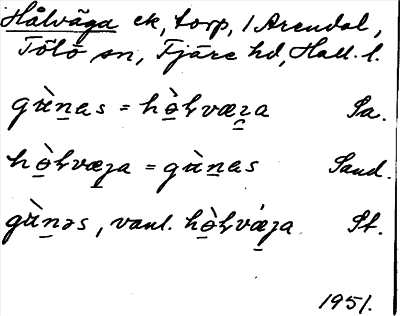 Hålväga ek, torp, / Arendal,
Tölö sn, Fjäre hd, Hall. l.
gùnas = hòlvæga Sa.
hòlvæga = gùnas Sand.
gùnəs, vanl. hòlvæ̀ga St.
1951.